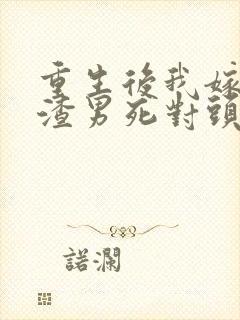 重生後我嫁
渣男死對頭
諾瀾